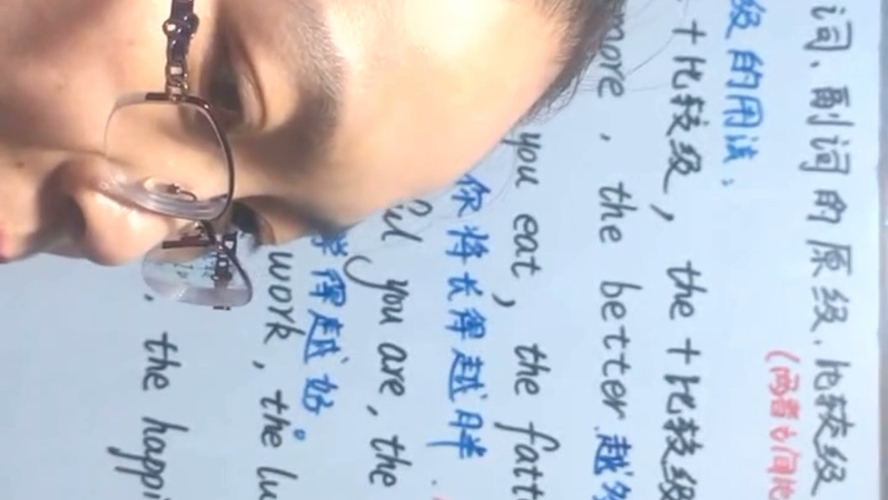 词、副词的原级、比较级
(两者之间比
级的用法:
+比较级, the+比较级
more, the better 越
you eat, the fatt
你将长得越胖.
ful you are, the
学得越好。
work, the lu
, the happi